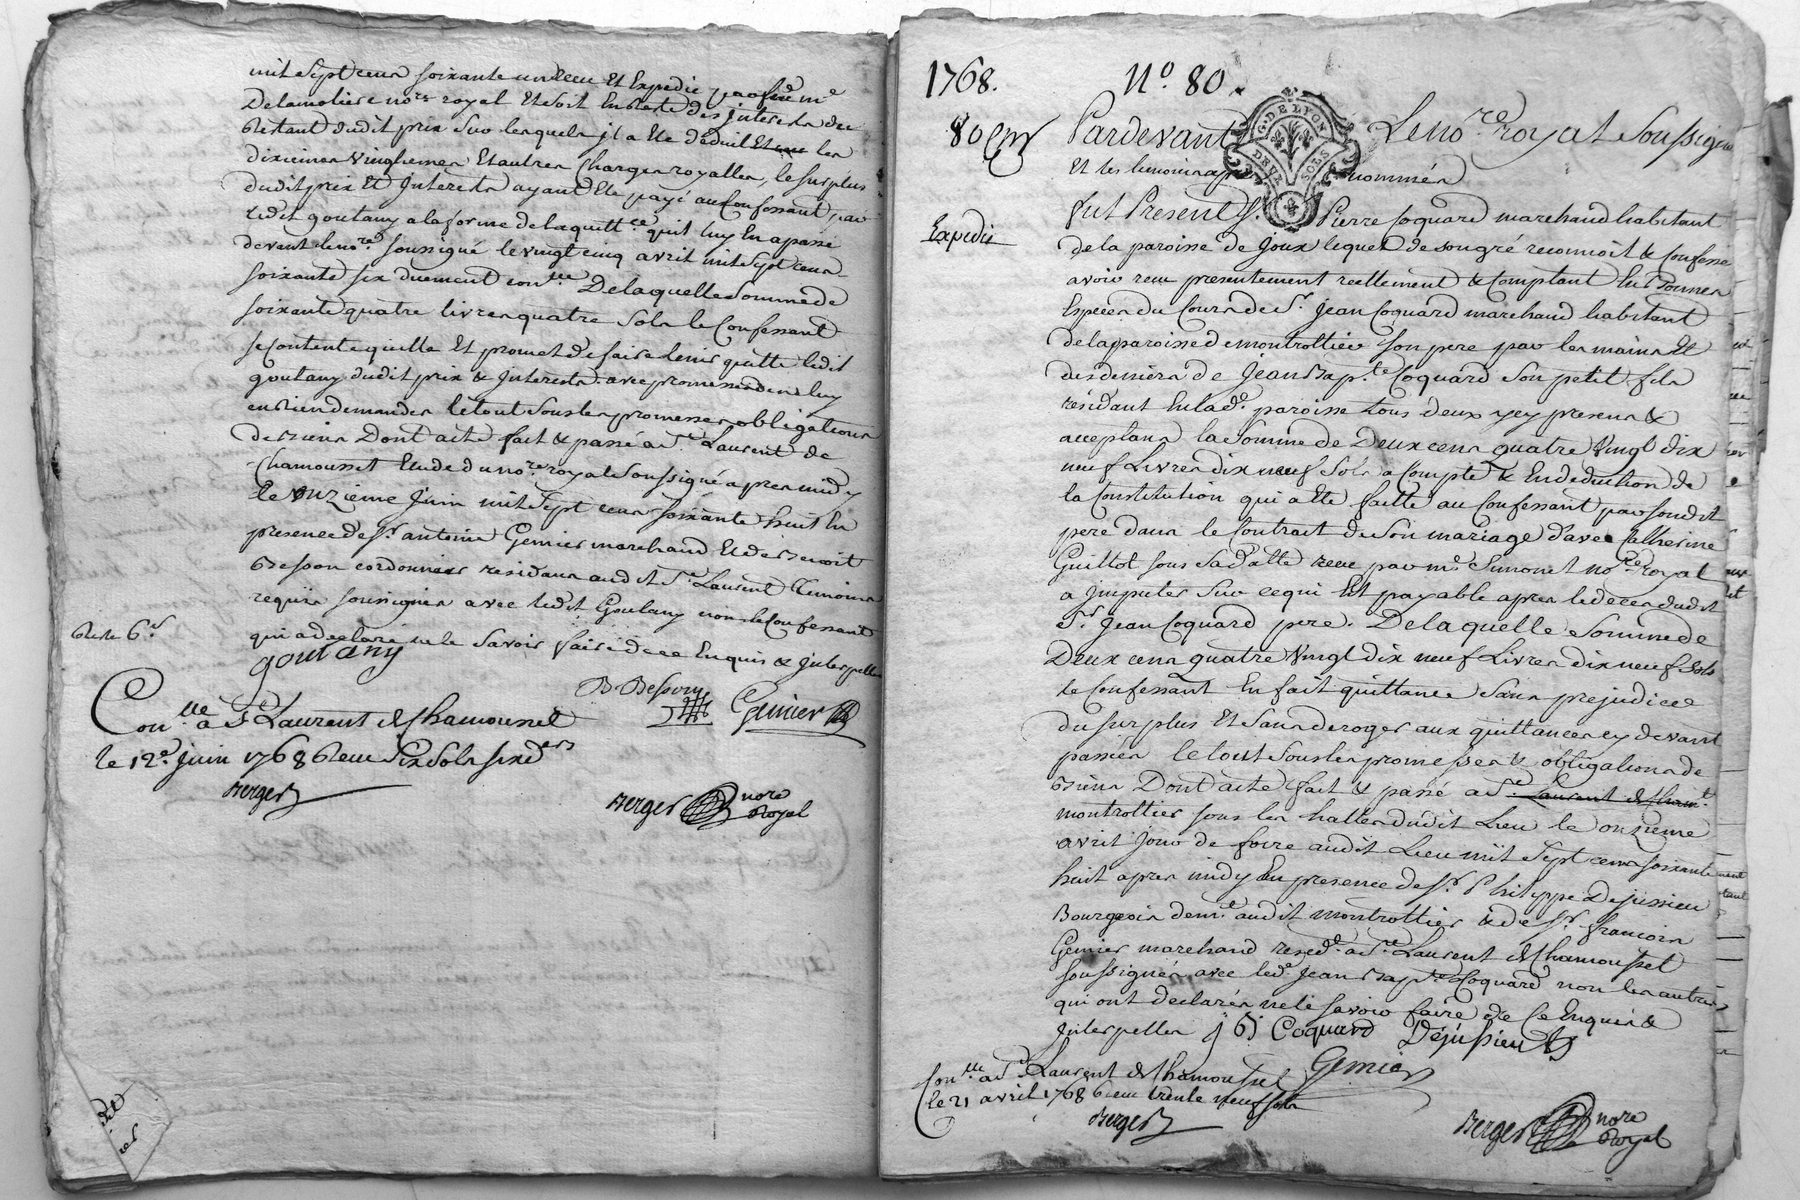 mil sept cens soixante un receu Et Expedié par led. me
Delamoliere nore royal Et soit En reste des interests du
restant dudit prix sur lesquels il a Eté déduit les
dixiemes vingtiemes Et autres Charges royalles, le surplus
dudit prix Et Interests ayant Eté payé au Confessant par
ledit goutany a la forme de la quittce qu'il luy En a passé
devant le nore soussigné le vingt cinq avril mil sept cens
soixante six duement conlle De laquelle somme de
soixante quatre livres quatre sols le Confessant
se contente quitte Et promet de faire tenir quitte ledit
goutany dudit prix & Interests avec promesse de ne luy
en rien demander le tout sous les promesses obligations
de biens Dont acte fait & passé a St Laurent de
Chamousset Etude du nore royal soussigné apres midy
le onzieme Juin mil sept cens soixante huit En
presence de sr antoine Genier marchand Et de Benoit
Besson cordonnier residans audit St Laurent Temoins
requis soussignés avec ledit Goutany non le Confessant
qui a declaré ne le savoir faire de ce Enquis & Interpellé
goutany
B Besson
Genier
Conlle a St Laurent de Chamousset
le 12e Juin 1768 receu six sols six ders
Berger
Berger nore Royal
1768. No. 80.
G. DE LYON
DEUX SOLS
Pardevant Le nore royal soussigné
Et les temoins nommés
Expedié
fut Present Sr. Pierre Coquard marchand habitant
de la paroisse de Joux lequel de son gré reconnoit & Confesse
avoir receu presentement reellement & Comptant En Bonnes
Especes du Cours de Sr. Jean Coquard marchand habitant
de la paroisse de montrottier son pere par les mains Et
des deniers de Jean Bapte Coquard son petit fils
résidant En lade. paroisse tous deux icy presens &
acceptans la somme de Deux cens quatre Vingt dix
neuf Livres dix neuf sols a Compte & En deduction de
la Constitution qui a Eté faitte au Confessant par sondit
pere dans le Contrat de son mariage d'avec Catherine
Guillot sous sa datte receu par me Simonet nore royal
a Imputer sur ce qui Est payable apres le deces dudit
Sr. Jean Coquard pere. De laquelle somme de
Deux cens quatre Vingt dix neuf Livres dix neuf sols
le Confessant En fait quittance sans prejudice
du surplus Et sans deroger aux quittances cy devant
passées le tout sous les promesses & obligations de
biens Dont acte fait & passé a St. Laurent de Chamt.
montrottier sous les halles dudit Lieu le onzieme
avril Jour de foire audit Lieu mil sept cens soixante
huit apres midy En presence de Sr. Philippe Dejussieu
Bourgeois demt audit montrottier & de Sr. francois
Genier marchand resid. a St Laurent de Chamousset
soussignés avec led. Jean Bapte Coquard non les autres
qui ont declarés ne le savoir faire de Ce Enquis &
Interpellés J b Coquard Dejussieu
Genier
Conlle a St Laurent de Chamousset
le 21 avril 1768 receu trente neuf sols
Berger
Berger nore Royal